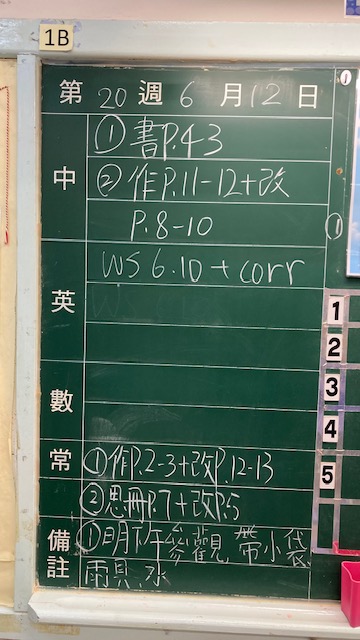 1B
第 20 週 6 月 12 日
中
① 書P.43
② 作P.11-12+改
P.8-10
英
WS 6.10 + corr
數
常
①作P.2-3+改P.12-13
②思冊P.7+改P.5
備註
①明下午參觀,帶小袋、
雨具、水
1
2
3
4
5